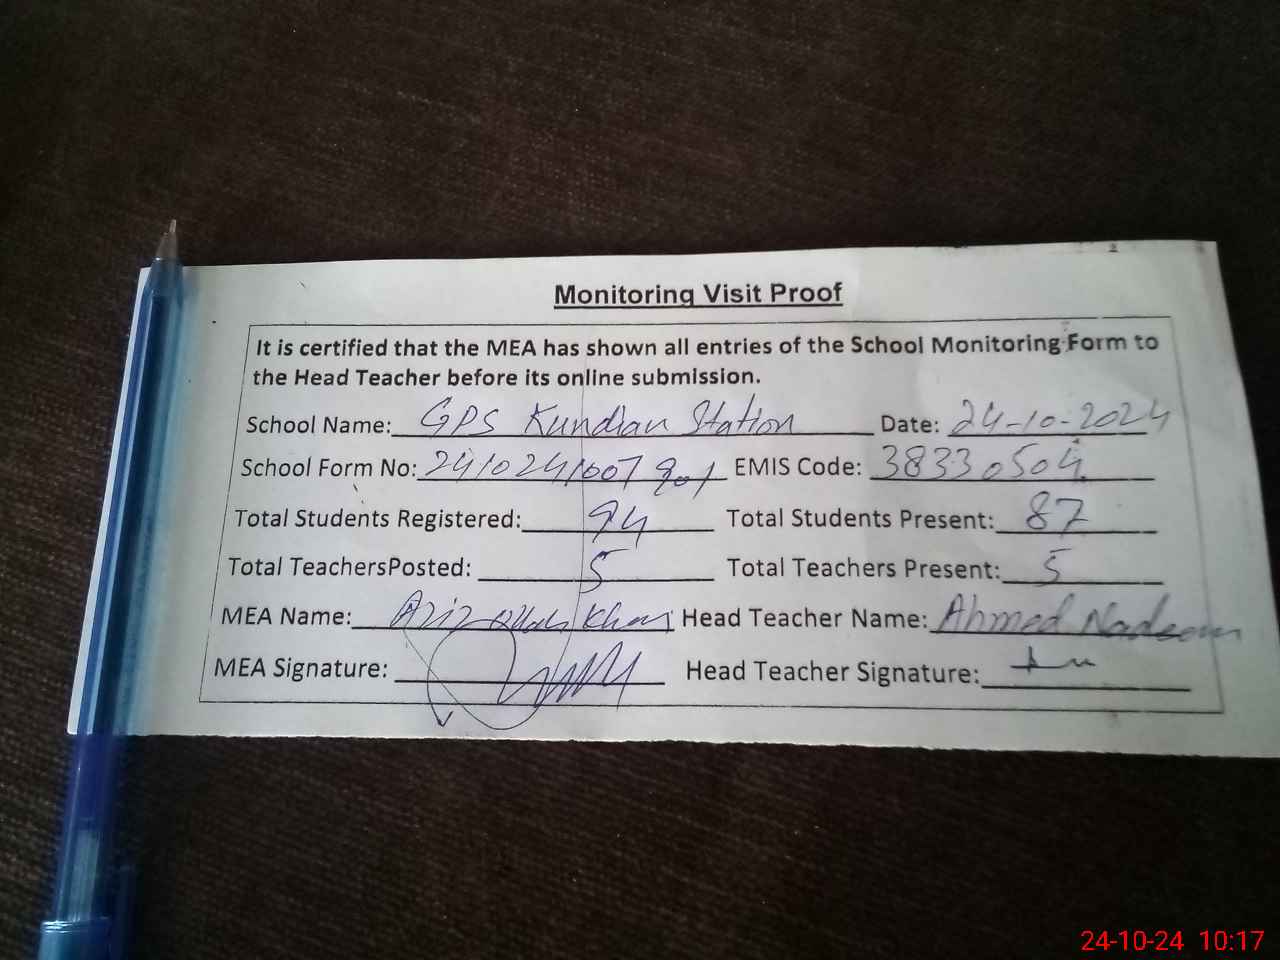 Monitoring Visit Proof
It is certified that the MEA has shown all entries of the School Monitoring Form to
the Head Teacher before its online submission.
School Name: GPS Kundian Station Date: 24-10-2024
School Form No: EMIS Code: 38330504
Total Students Registered: 94 Total Students Present: 87
Total TeachersPosted: 5 Total Teachers Present: 5
MEA Name: Aziz Ullah Khan Head Teacher Name: Ahmed Nadeem
MEA Signature: Head Teacher Signature:
24-10-24 10:17